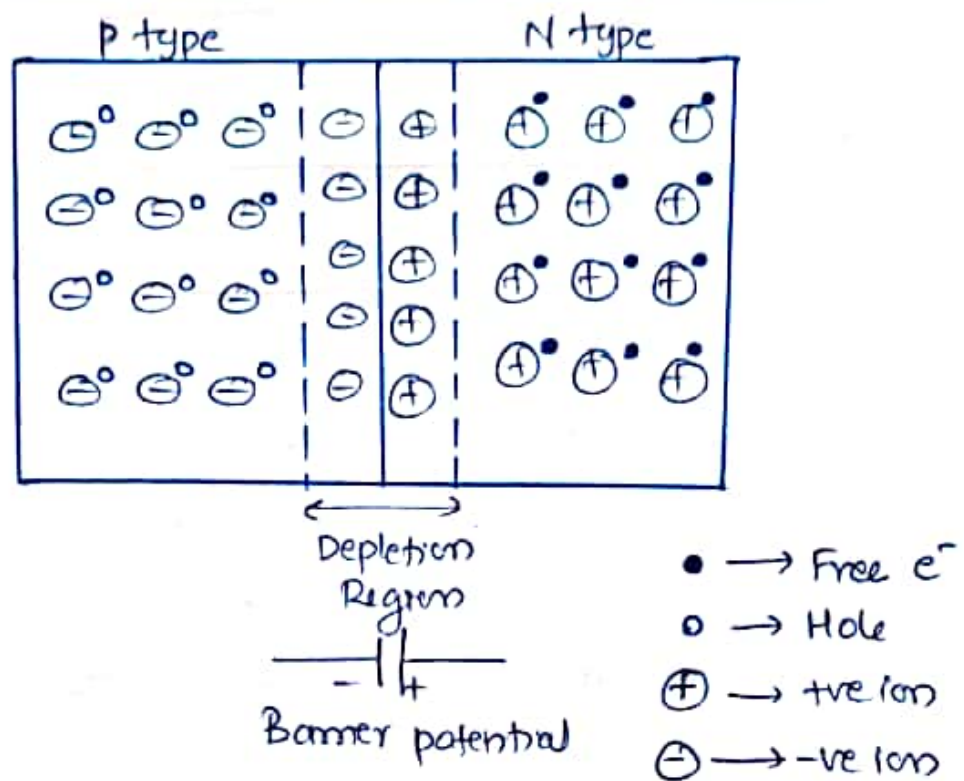 P type
N type
Depletion
Region
- +
Barrier potential
● → Free e⁻
○ → Hole
⊕ → +ve ion
⊖ → -ve ion